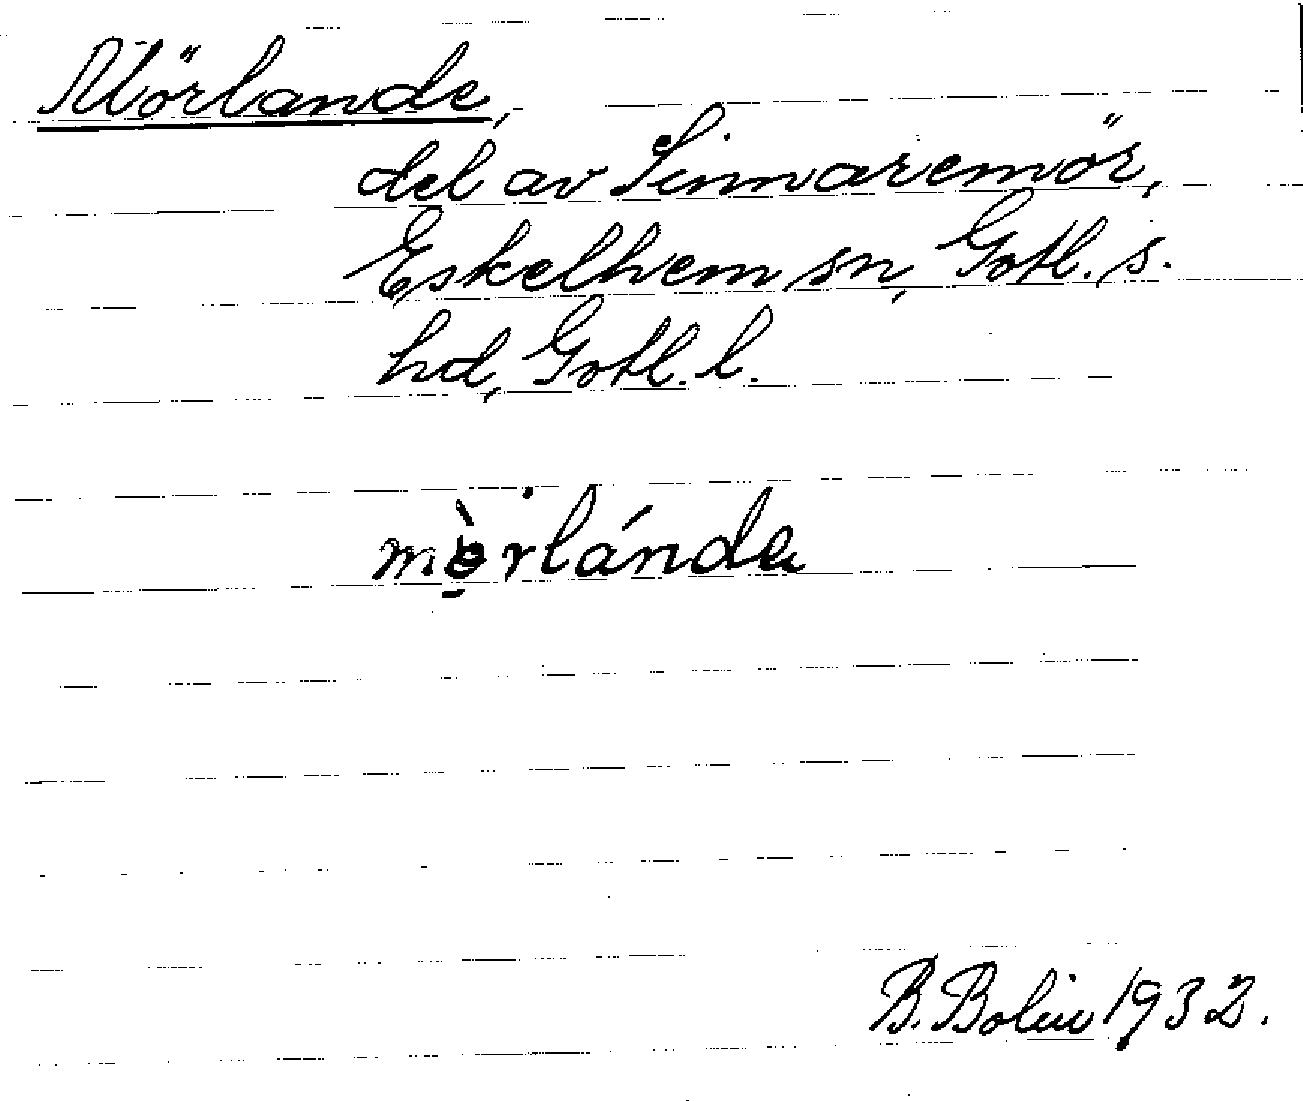 Mörlande,
del av Sinnaremör,
Eskelhem sn, Gotl. s.
hd, Gotl. l.
B. Bolin 1932.